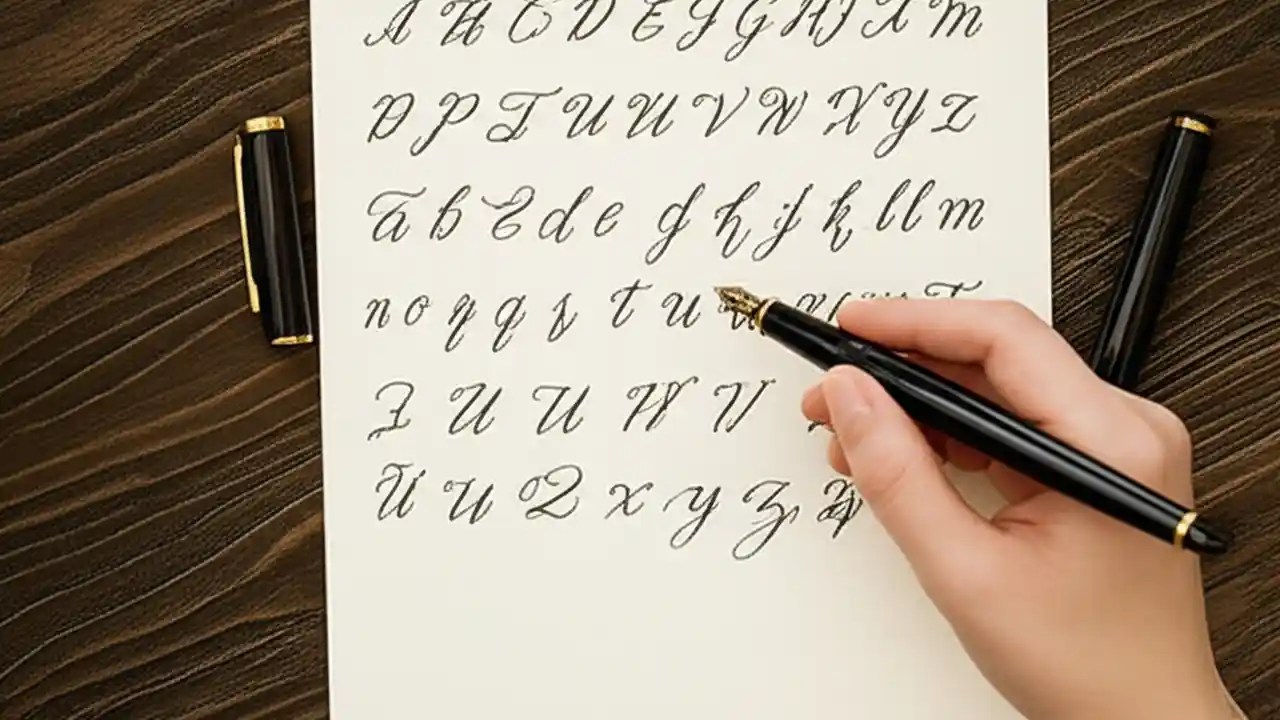 A H C D E Y G H J X M
D P T U U V W X Y Z
a b E d e g h j k ll m
n o q q s t u
Z U U W V
U U Q x y z